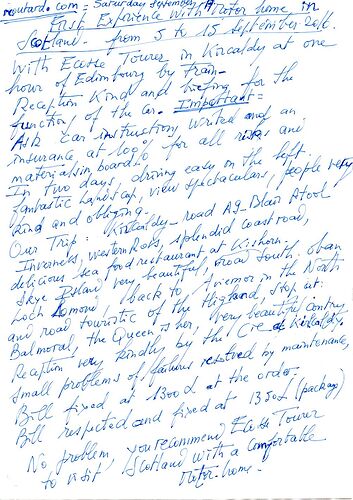 routard.com = Saturday September
First Experience with Motor home in
Scotland - from 5 to 15 September 2016.
With Ecosse Tourer in Kircaldy at one
hour of Edimbourg by train -
Reception Kind and briefing for the
functions of the car. Important =
Ask car instruction, writed and an
insurance, at 100% for all risks and
materials in board.
In two days, driving easy on the left.
fantastic landscap, view spectaculars, people very
kind and obliging -
Our Trip: Kirkcaldy - road A9 - Blair Atool
Inverness, western Ross, splendid coast road,
delicious sea food restaurant at Kishorn.
Skye Island very beautiful, road South. oban
Loch Lomond, back to Aviemor in the North
and road touristic of the Highland, stop at:
Balmoral, the Queen is her, very beautiful contry
Reception very kindly by the Cie of Kirkcaldy.
Small problems of failures resolved by maintenance,
Bill fixed at 1300£ at the order.
Bill respected and fixed at 1350£ (package)
No problem, you recommend Ecosse Tourer
to visit Scotland with a comfortable
Motor-home -